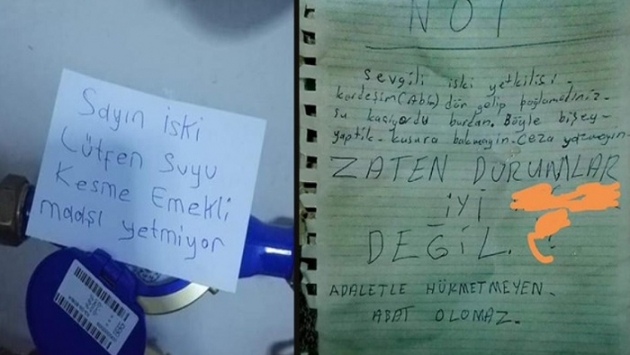 Sayın İski
Lütfen Suyu
Kesme Emekli
maaşı yetmiyor
NOT
Sevgili iski yetkilisi-
kardeşim(Abla) dör gelip bağlamadınız-
su kaçıyordu burdan. Böyle bişey-
yaptik- kusura bakmayın. Ceza yazmayın-
ZATEN DURUMLAR
İYİ
DEĞİL. !
ADALETLE HÜKMETMEYEN.
ABAT OLOMAZ.